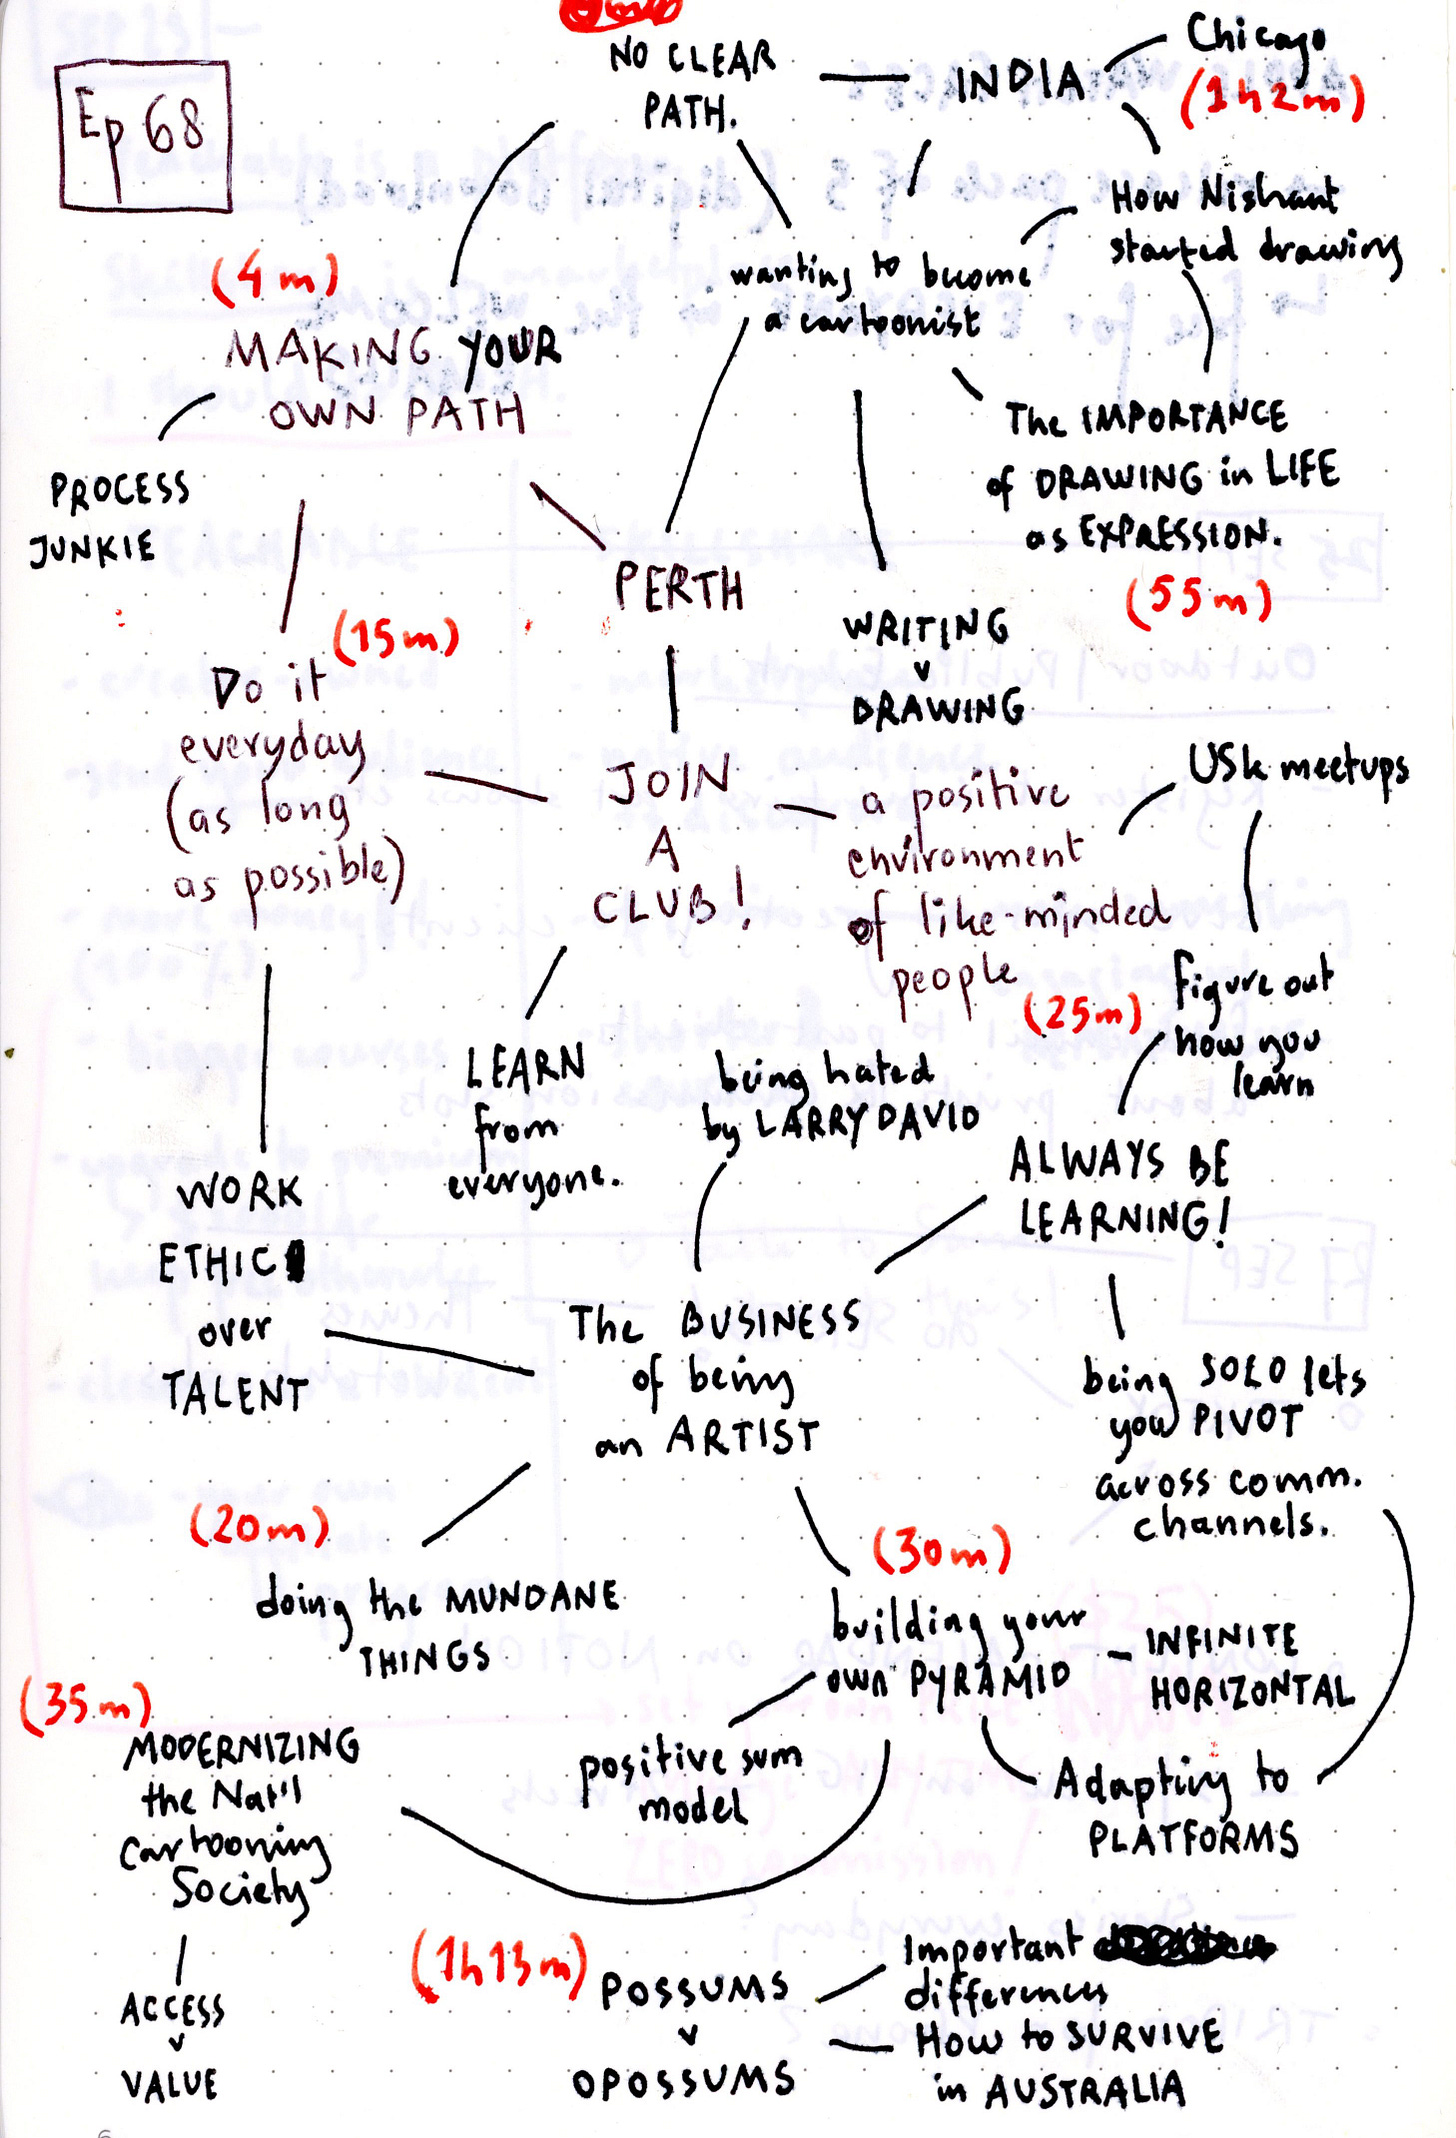 Ep 68
NO CLEAR
PATH.
INDIA
Chicago
(1h2m)
How Nishant
started drawing
wanting to become
a cartoonist
(4m)
MAKING YOUR
OWN PATH
PROCESS
JUNKIE
The IMPORTANCE
of DRAWING in LIFE
as EXPRESSION.
(55m)
PERTH
WRITING
v
DRAWING
(15m)
Do it
everyday
(as long
as possible)
JOIN
A
CLUB!
a positive
environment
of like-minded
people
USk meetups
(25m)
figure out
how you
learn
LEARN
from
everyone.
being hated
by LARRY DAVID
ALWAYS BE
LEARNING!
WORK
ETHIC
over
TALENT
The BUSINESS
of being
an ARTIST
being SOLO lets
you PIVOT
across comm.
channels.
(20m)
doing the MUNDANE
THINGS
(30m)
building your
own PYRAMID
INFINITE
HORIZONTAL
(35m)
MODERNIZING
the Nat'l
Cartooning
Society
positive sum
model
Adapting to
PLATFORMS
ACCESS
v
VALUE
(1h13m)
POSSUMS
v
OPOSSUMS
Important
differences
How to SURVIVE
in AUSTRALIA